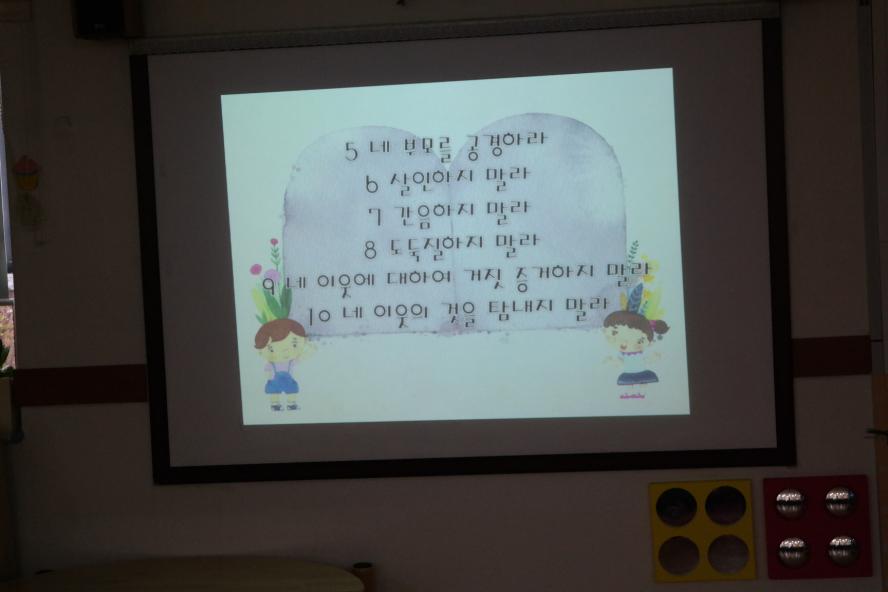 5 네 부모를 공경하라
6 살인하지 말라
7 간음하지 말라
8 도둑질하지 말라
9 네 이웃에 대하여 거짓 증거하지 말라
10 네 이웃의 것을 탐내지 말라